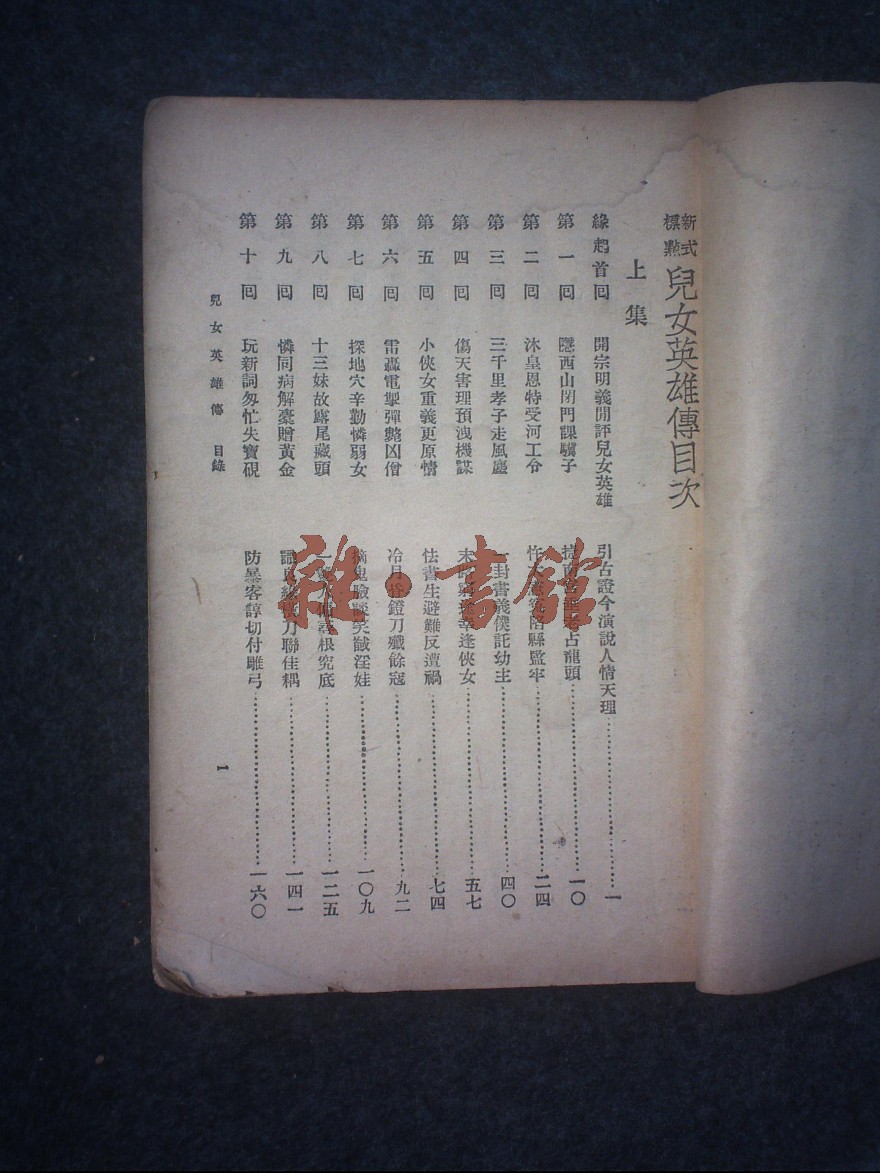 新式標點 兒女英雄傳目次
上集
緣起首囘 開宗明義閒評兒女英雄 引古證今演說人情天理 一
第一囘 隱西山閉門課驥子 占龍頭 一〇
第二囘 沐皇恩特受河工令 縣監牢 二四
第三囘 三千里孝子走風塵 一封書義僕託幼主 四〇
第四囘 傷天害理預洩機謀 末路 逢俠女 五七
第五囘 小俠女重義更原情 怯書生避難反遭禍 七四
第六囘 雷轟電掣彈斃凶僧 冷月昏鐙刀殲餘寇 九二
第七囘 探地穴辛勤憐弱女 摘鬼臉談笑馘淫娃 一〇九
第八囘 十三妹故露尾藏頭 一 尋根究底 一二五
第九囘 憐同病解橐贈黃金 刀聯佳耦 一四一
第十囘 玩新詞匆忙失寶硯 防暴客諄切付雕弓 一六〇
兒女英雄傳 目錄
1
雜·書館